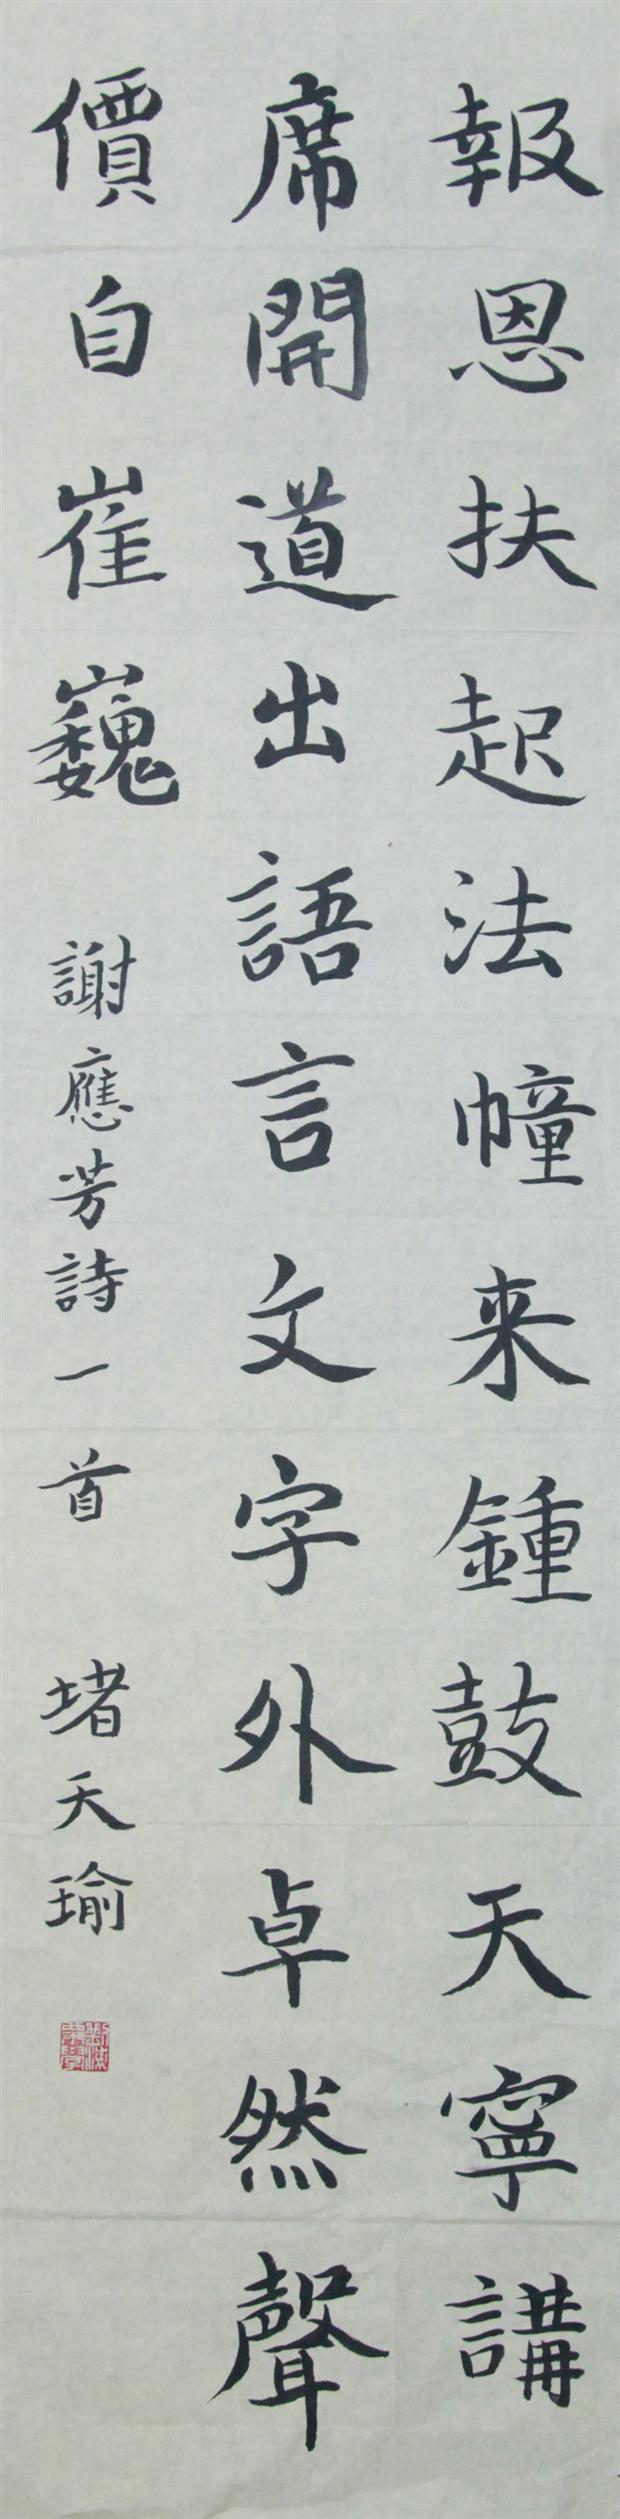 報恩扶起法幢来鍾鼓天寧講
席開道出語言文字外卓然聲
價自崔巍 謝應芳詩一首 堵天瑜